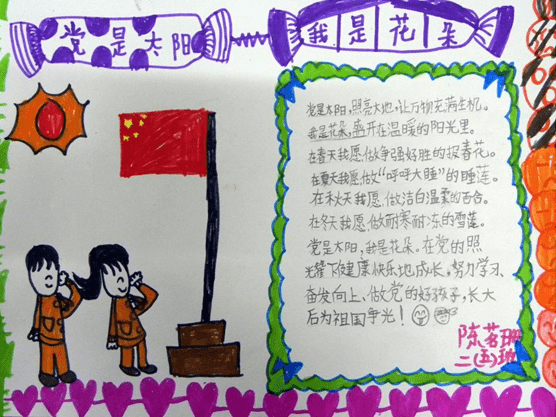 党是太阳
我是花朵
党是太阳,照亮大地,让万物充满生机。
我是花朵,盛开在温暖的阳光里。
在春天我愿做争强好胜的报春花。
在夏天我愿做“呼呼大睡”的睡莲。
在秋天我愿做洁白温柔的百合。
在冬天我愿做耐寒耐冻的雪莲。
党是太阳,我是花朵。在党的照
耀下健康快乐地成长。努力学习、
奋发向上,做党的好孩子,长大
后为祖国争光!
陈茗珊
二(五)班